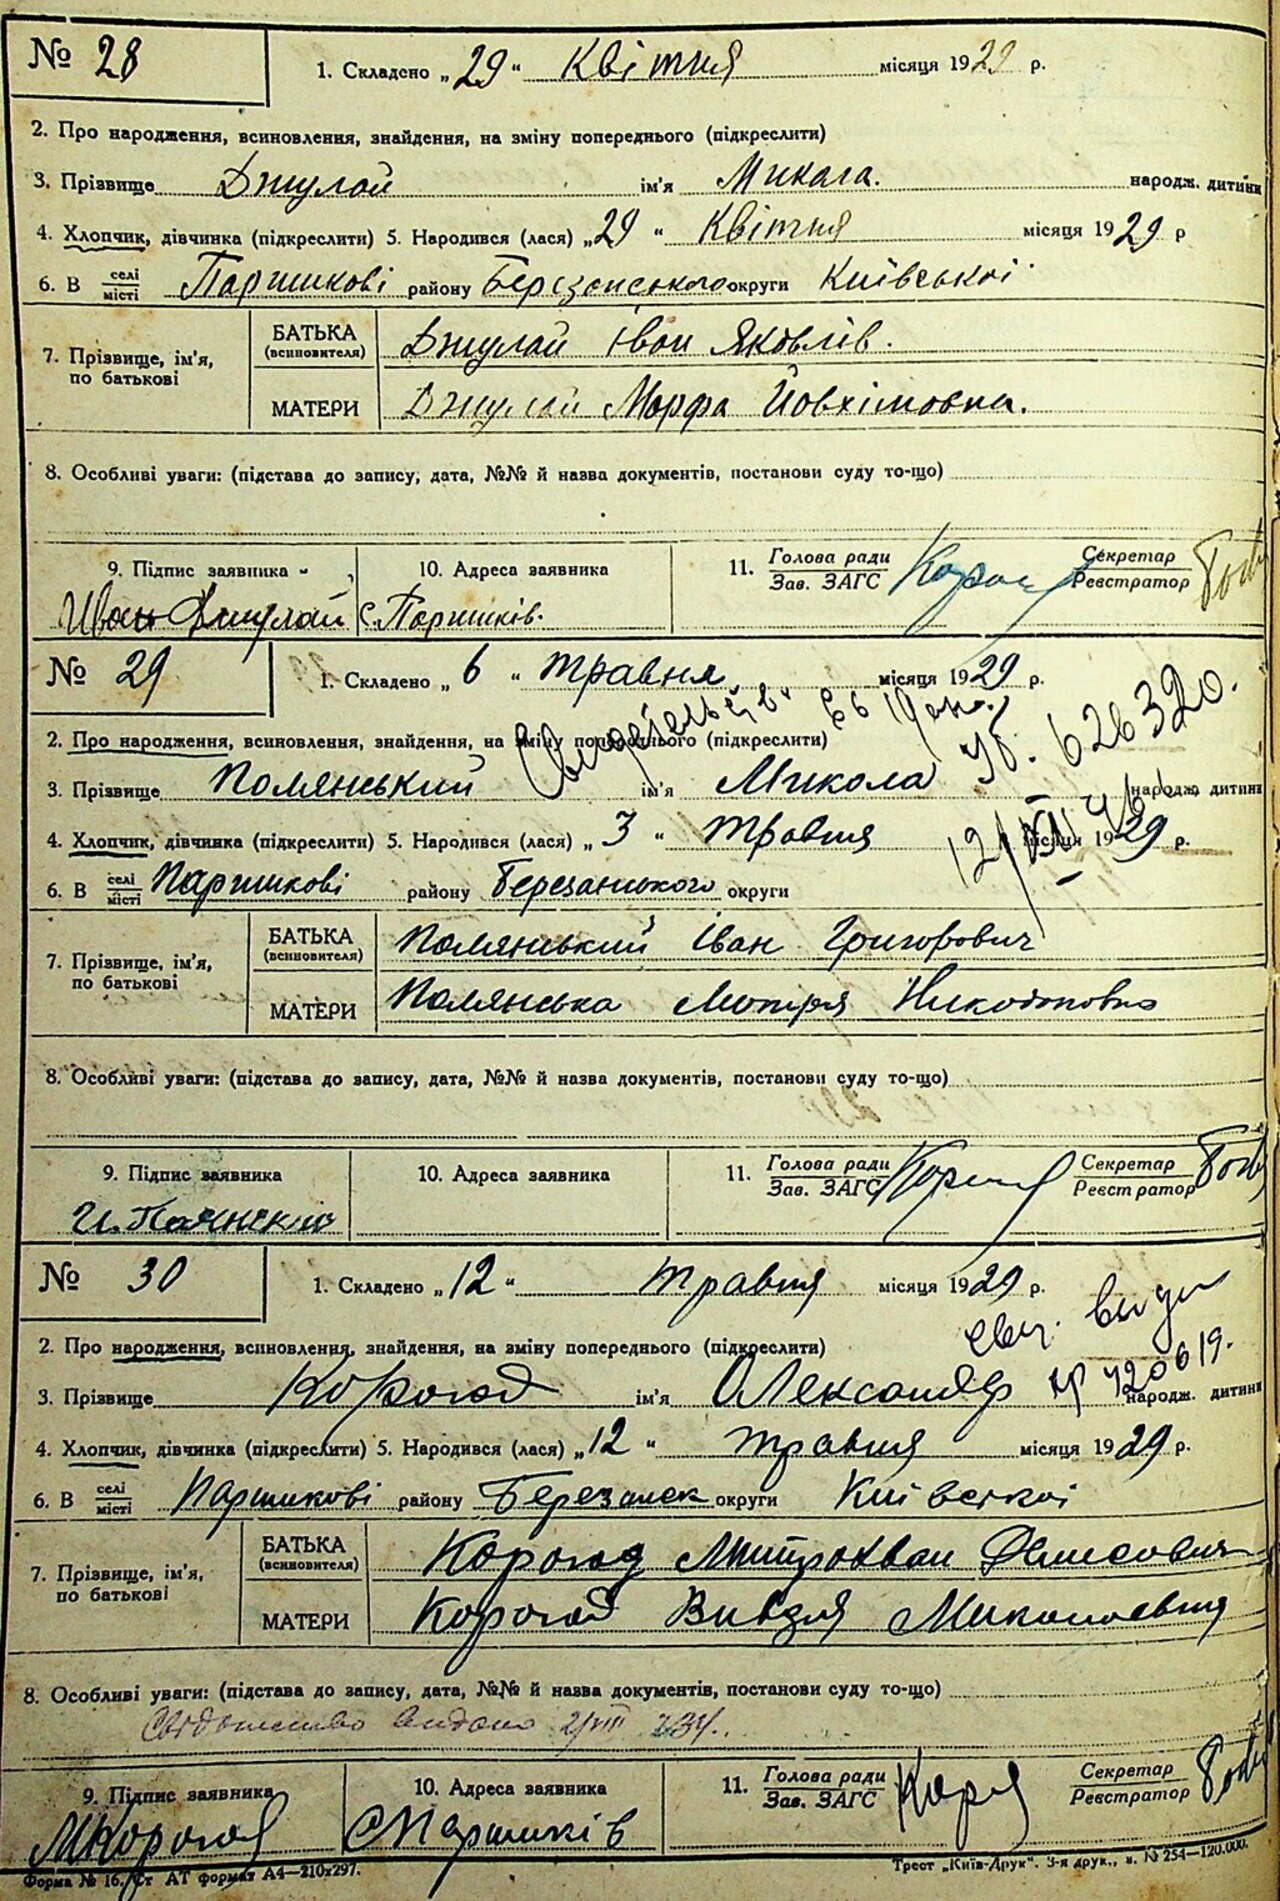 № 28
1. Складено „29“ Квітня місяця 1929 р.
2. Про народження, всиновлення, знайдення, на зміну попереднього (підкреслити)
3. Прізвище Джулай ім'я Микола. народж. дитини
4. Хлопчик, дівчинка (підкреслити) 5. Народився (лася) „29“ Квітня місяця 1929 р
6. В селі місті Паришкові району Березанського округи Київської
7. Прізвище, ім'я, по батькові
БАТЬКА (всиновителя) Джулай Іван Яковлів.
МАТЕРИ Джулай Марфа Йовхімовна.
8. Особливі уваги: (підстава до запису, дата, №№ й назва документів, постанови суду то-що)
9. Підпис заявника
Иван Джулай
10. Адреса заявника
с. Паришків.
11. Голова ради Зав. ЗАГС
Секретар Реєстратор
№ 29
1. Складено „6“ травня місяця 1929 р.
2. Про народження, всиновлення, знайдення, на зміну попереднього (підкреслити)
626320.
3. Прізвище Полянський ім'я Микола народж. дитини
4. Хлопчик, дівчинка (підкреслити) 5. Народився (лася) „3“ травня місяця 1929 р.
6. В селі місті Паришкові району Березанського округи
7. Прізвище, ім'я, по батькові
БАТЬКА (всиновителя) Полянський Іван Григорович
МАТЕРИ Полянська Мотря
8. Особливі уваги: (підстава до запису, дата, №№ й назва документів, постанови суду то-що)
9. Підпис заявника
10. Адреса заявника
11. Голова ради Зав. ЗАГС
Секретар Реєстратор
№ 30
1. Складено „12“ травня місяця 1929 р.
2. Про народження, всиновлення, знайдення, на зміну попереднього (підкреслити)
420619.
3. Прізвище Корогод ім'я Олександр народж. дитини
4. Хлопчик, дівчинка (підкреслити) 5. Народився (лася) „12“ травня місяця 1929 р.
6. В селі місті Паришкові району Березанськ округи Київської
7. Прізвище, ім'я, по батькові
БАТЬКА (всиновителя) Корогод Митрохван Денисович
МАТЕРИ Корогод Миколаєвна
8. Особливі уваги: (підстава до запису, дата, №№ й назва документів, постанови суду то-що)
9. Підпис заявника
МКорогод
10. Адреса заявника
с Паришків
11. Голова ради Зав. ЗАГС
Секретар Реєстратор
Форма № 16. Ст АТ формат А4—210x297.
Трест „Київ-Друк“. 3-я друк., з. № 254—120.000.